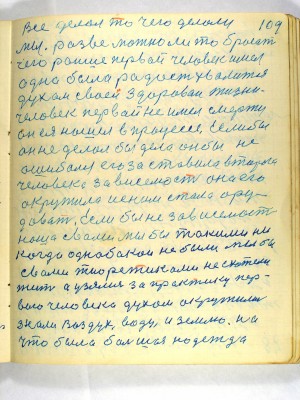 все делал то чего делали 109
мы. разве можно ли то бросит
чего ранше первай человек имел
одно была радост хвалится
духам своей здоровай жизни
человек первай не имел смерти
он ея нашел в процессе, Если бы
он не делал бы дела он бы не
ошибался его заставила втарога
человека зависемост она его
окружила и с ним стала ору-
доват, если бы не зависемост
наша с вами мы бы такими ни
когда однабокаи не были мы бы
с вами тиоретиками не схотели
жит а узялис за практику пер-
вого человека духом окружилис
знали воздух, воду, и землю. на
что была большая надежда